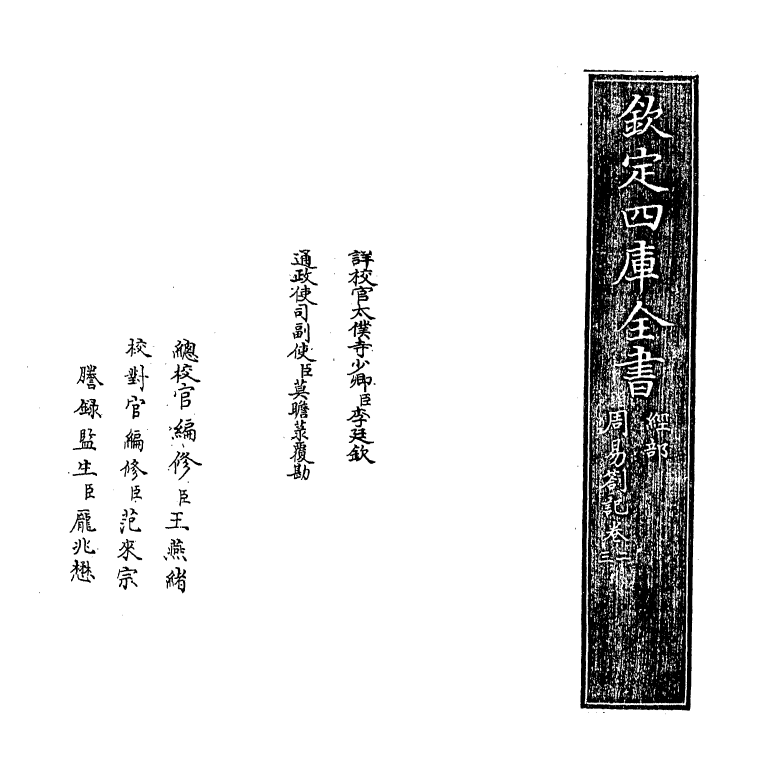 欽定四庫全書
經部
周易劄記卷二
三
詳校官太僕寺少卿臣李廷欽
通政使司副使臣莫瞻菉覆勘
總校官編修臣王燕緒
校對官編修臣范來宗
謄錄監生臣龐兆懋